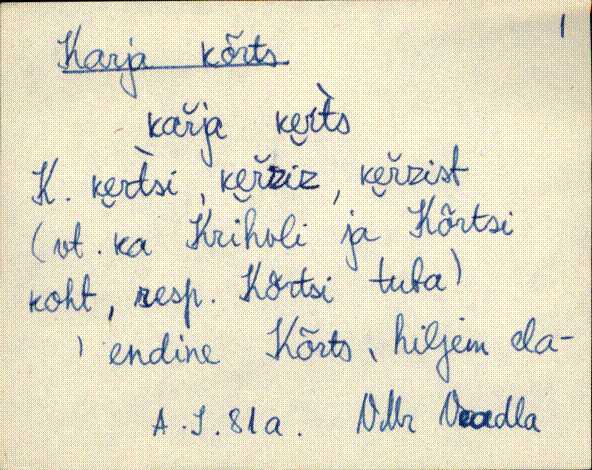 1
Karja kõrts
kařja ke̮rt̀s
K. ke̮rt̀si, ke̮řziz, ke̮řzist
(vt. ka Krihvli ja Kõrtsi
koht, resp. Kõrtsi tuba)
endine Kõrts, hiljem ela-
A.J. 81a.